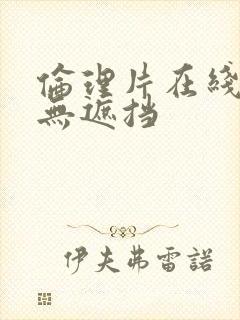 倫理片在线
無遮挡
伊夫弗雷諾